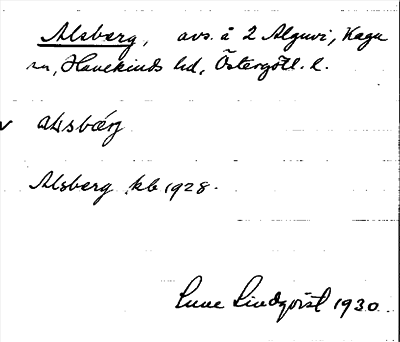 Alsberg, avs. å 2 Alguvi, Kaga
sn, Hanekinds hd, Östergötl. l.
alsbærj
Alsberg kb 1928.
Sune Lindqvist 1930.